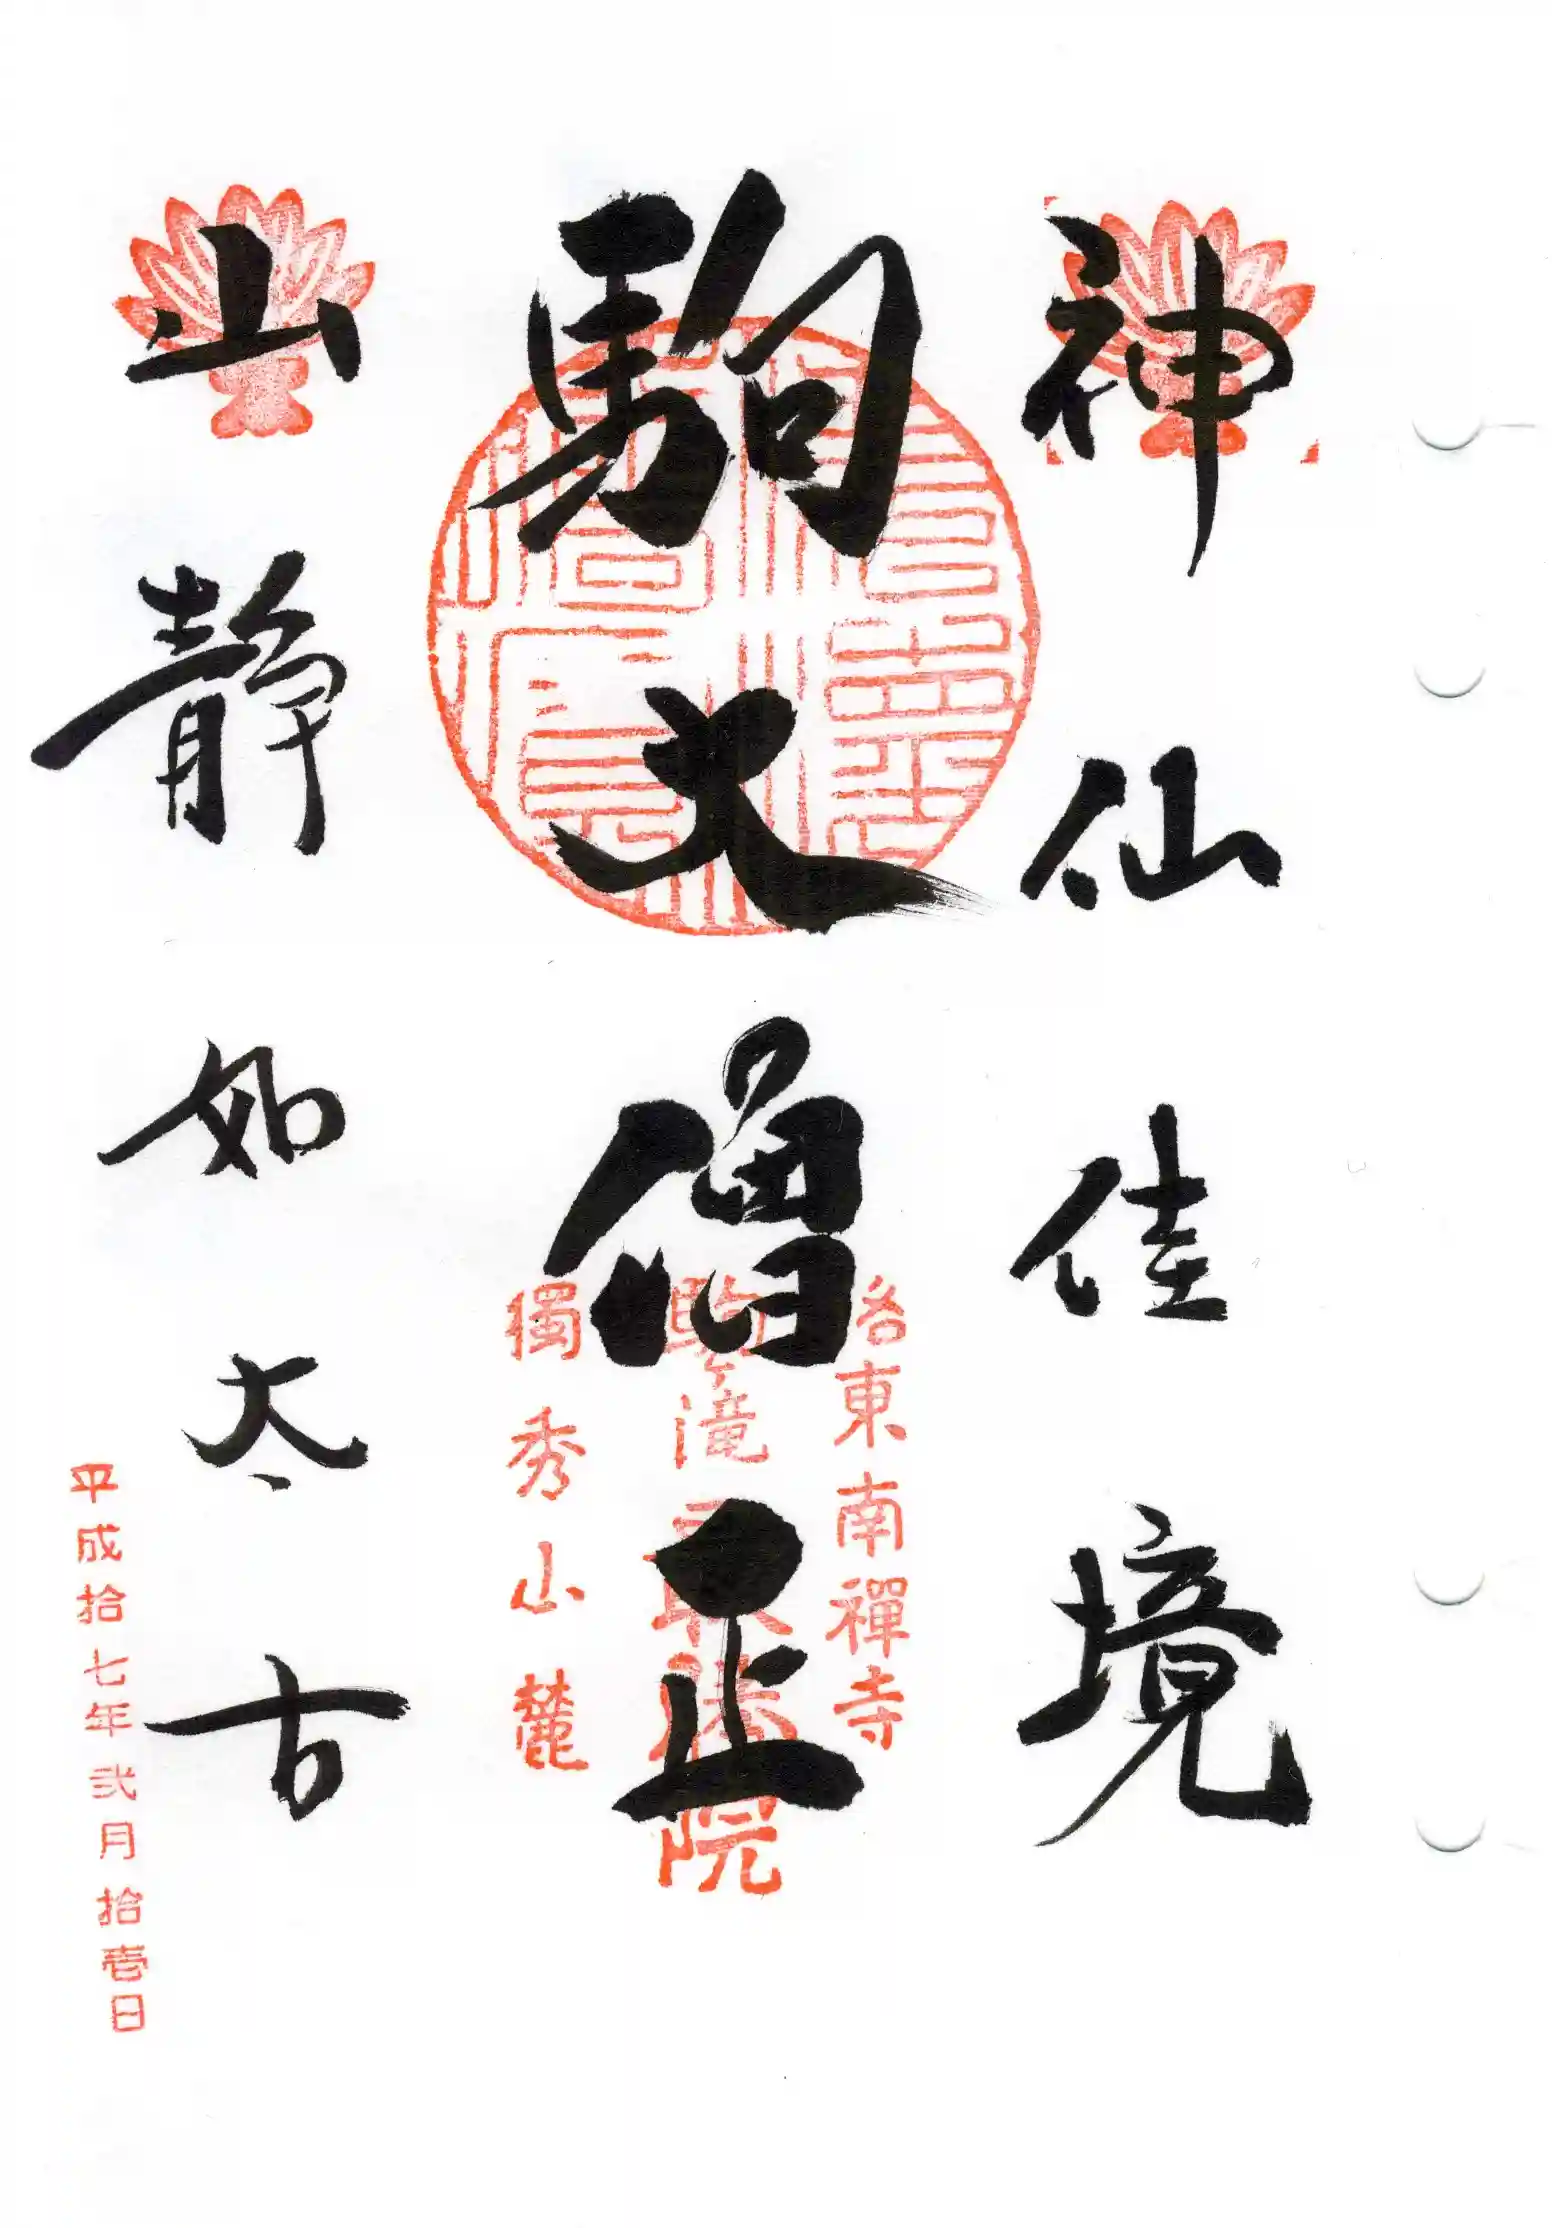 神仙佳境
駒大僧正
山静如太古
洛東南禪寺
駒ヶ滝最勝院
獨秀山麓
平成拾七年弐月拾壱日